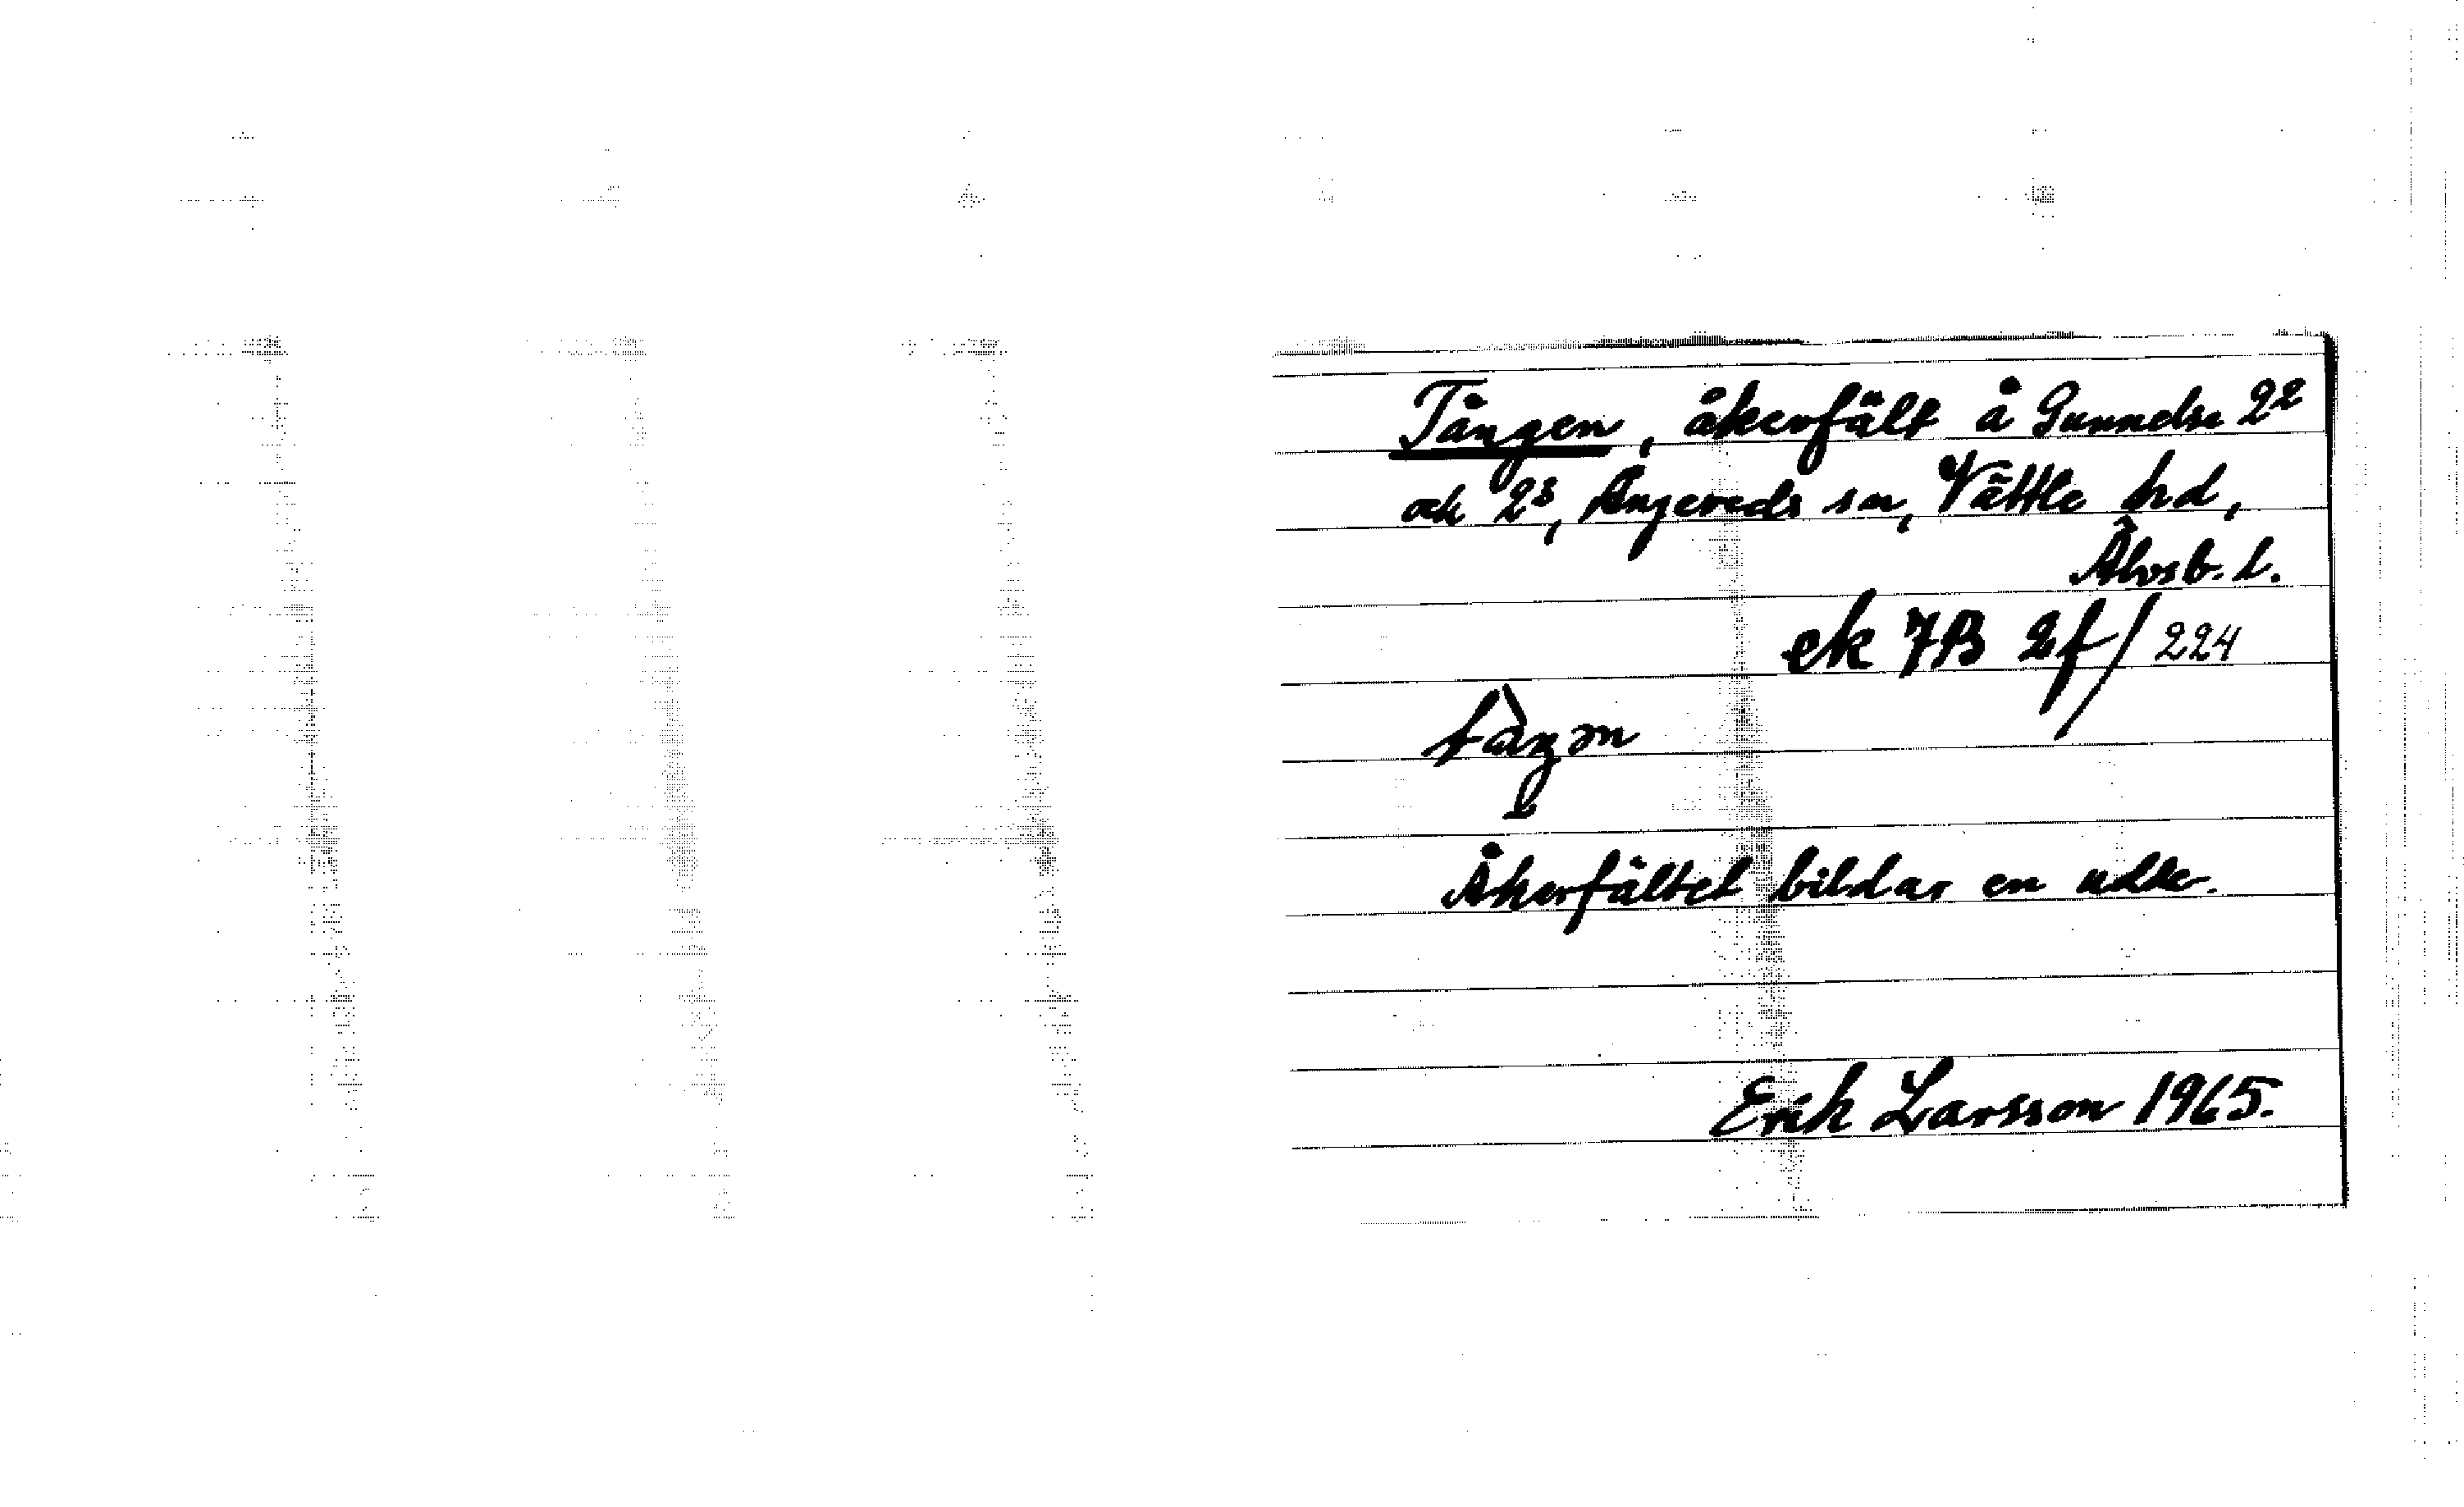 Tången, åkerfält å Gunnelse 2²
och 2³, Angereds sn, Vättle hd,
Älvsb. l.
ek 7B 2f/224
Åkerfältet bildar en udde.
Erik Larsson 1965.